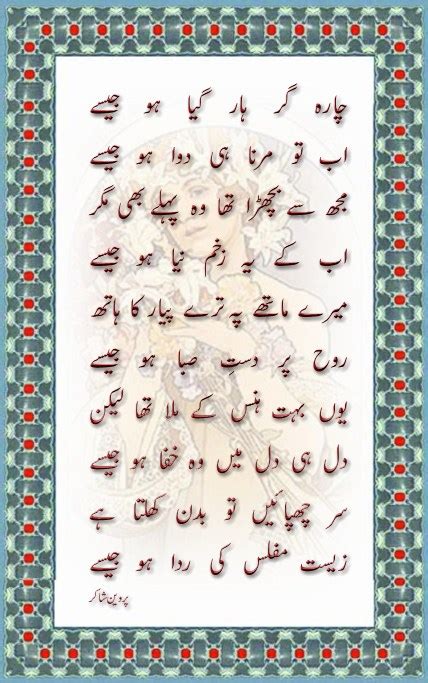 چارہ گر ہار گیا ہو جیسے
اب تو مرنا ہی دوا ہو جیسے
مجھ سے بچھڑا تھا وہ پہلے بھی مگر
اب کے یہ زخم نیا ہو جیسے
میرے ماتھے پہ ترے پیار کا ہاتھ
روح پر دست صبا ہو جیسے
یوں بہت ہنس کے ملا تھا لیکن
دل ہی دل میں وہ خفا ہو جیسے
سر چھپائیں تو بدن کھلتا ہے
زیست مفلس کی ردا ہو جیسے
پروین شاکر